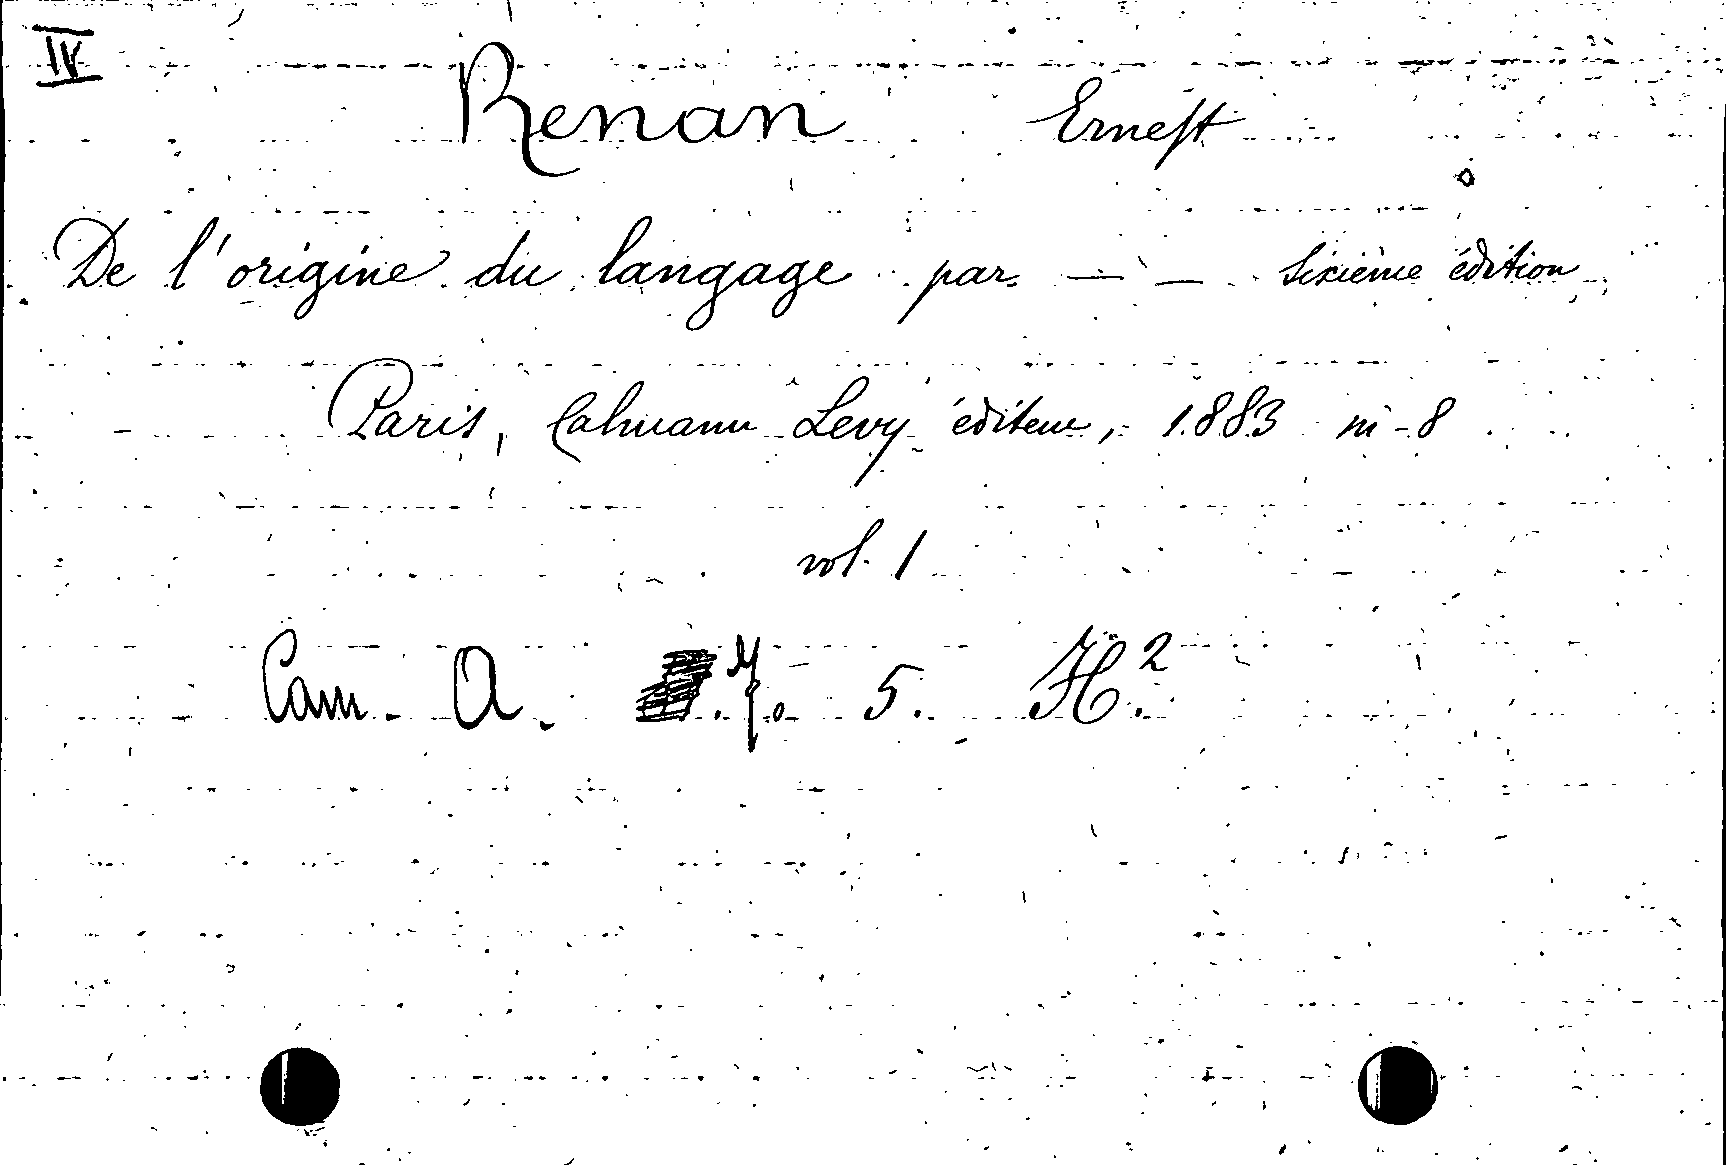 IV
Renan Ernest
De l'origine du langage par — — sixième édition
Paris, Calmann Levy éditeur, 1883 in-8
vol. 1
Cam. A. 7. 5. H².